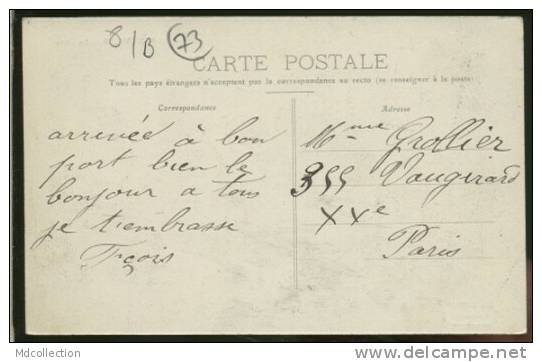 8/B 73
CARTE POSTALE
Tous les pays étrangers n'acceptent pas la correspondance au recto (se renseigner à la poste)
Correspondance
Adresse
arrivée à bon
port bien le
bonjour a tous
je t'embrasse
Fçois
Mme Grollier
355 Vaugirard
XXe
Paris
Mdcollection
www.delcampe.net